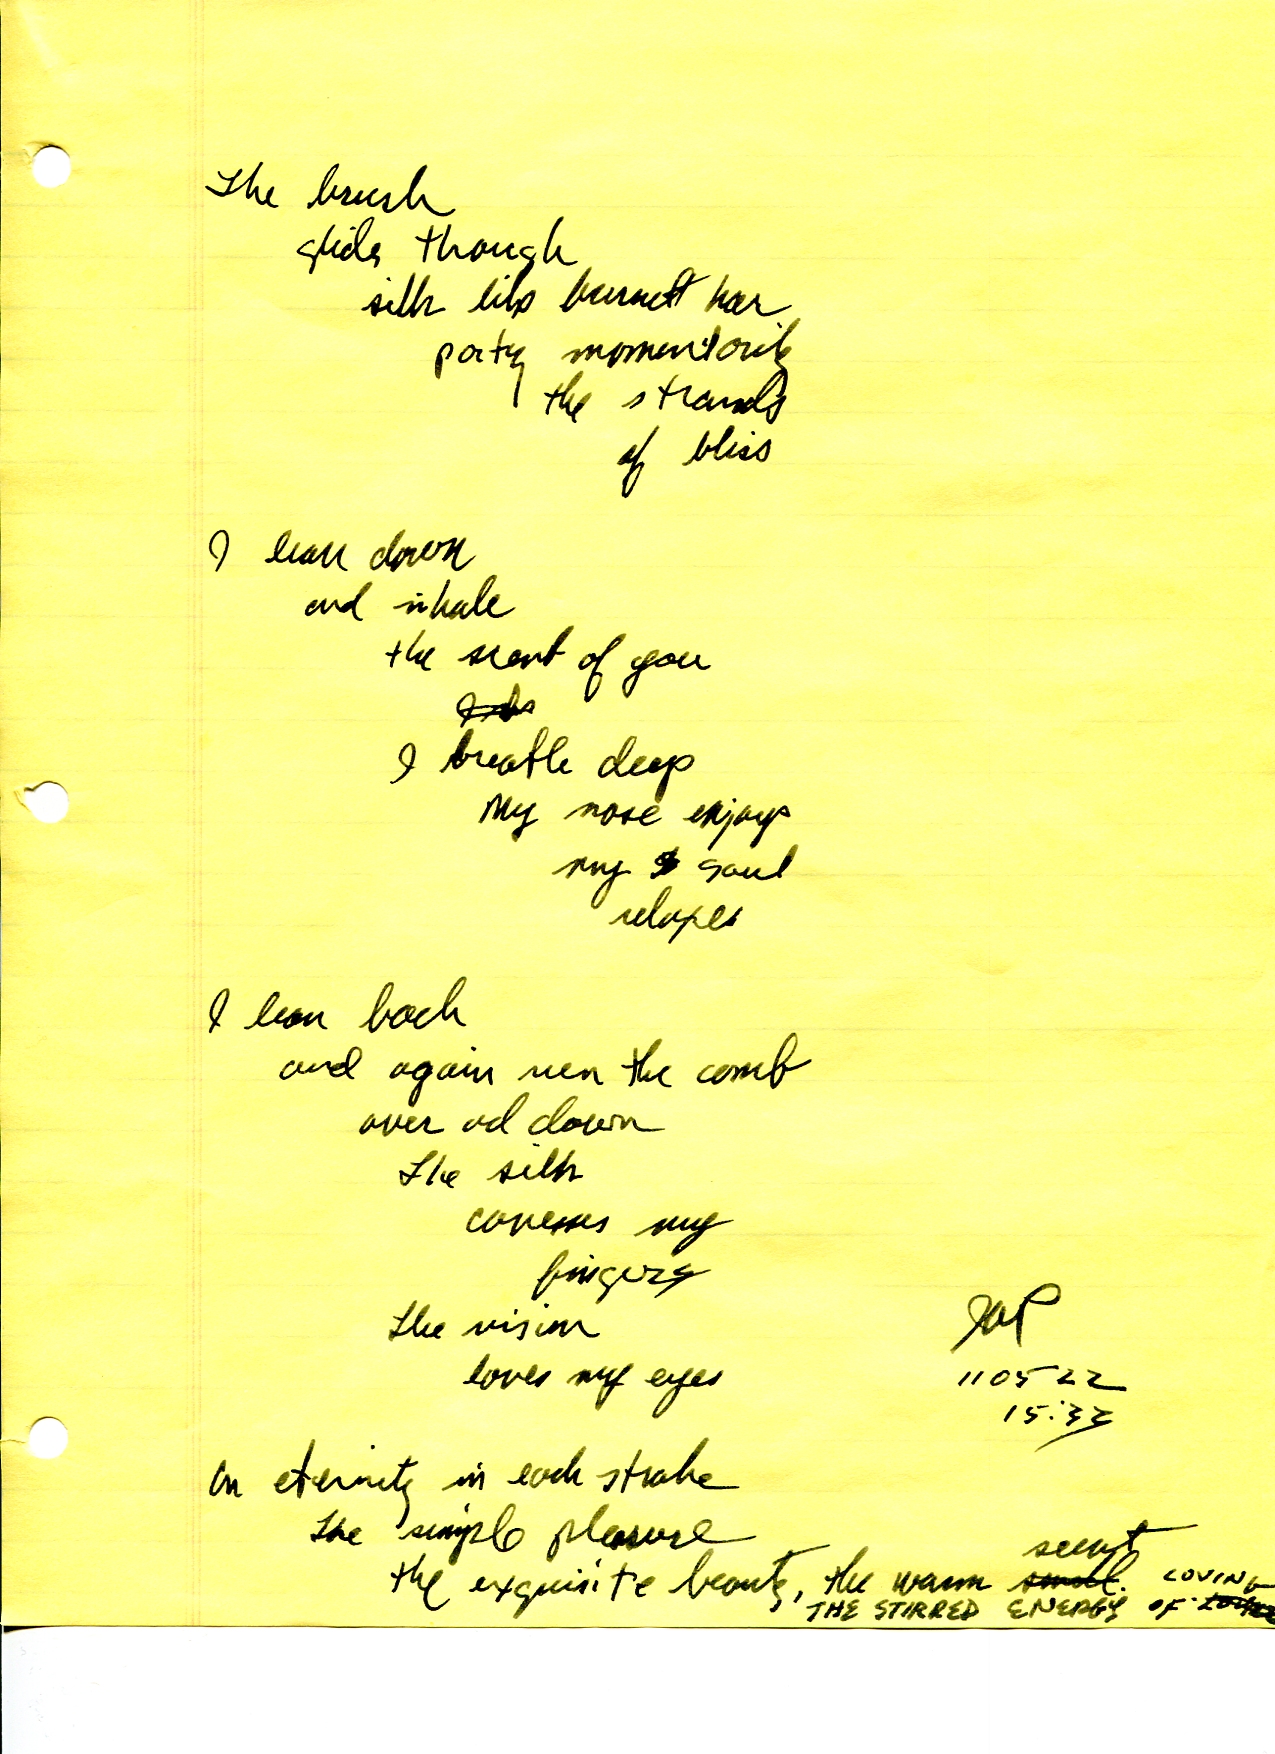 The brush
glides though
silk like burnett hair
party momentarily
the strands
of bliss
I lean down
and inhale
the scent of you
I breathe deep
My nose enjoys
my soul
relapes
I lean back
and again run the comb
over ad down
the silk
caresses my
fingers
the vision
loves my eyes
110522
15:33
an eternity in each stroke
the simple pleasure
the exquisite beauty, the warm scent
THE STIRRED ENERGY OF LOVING